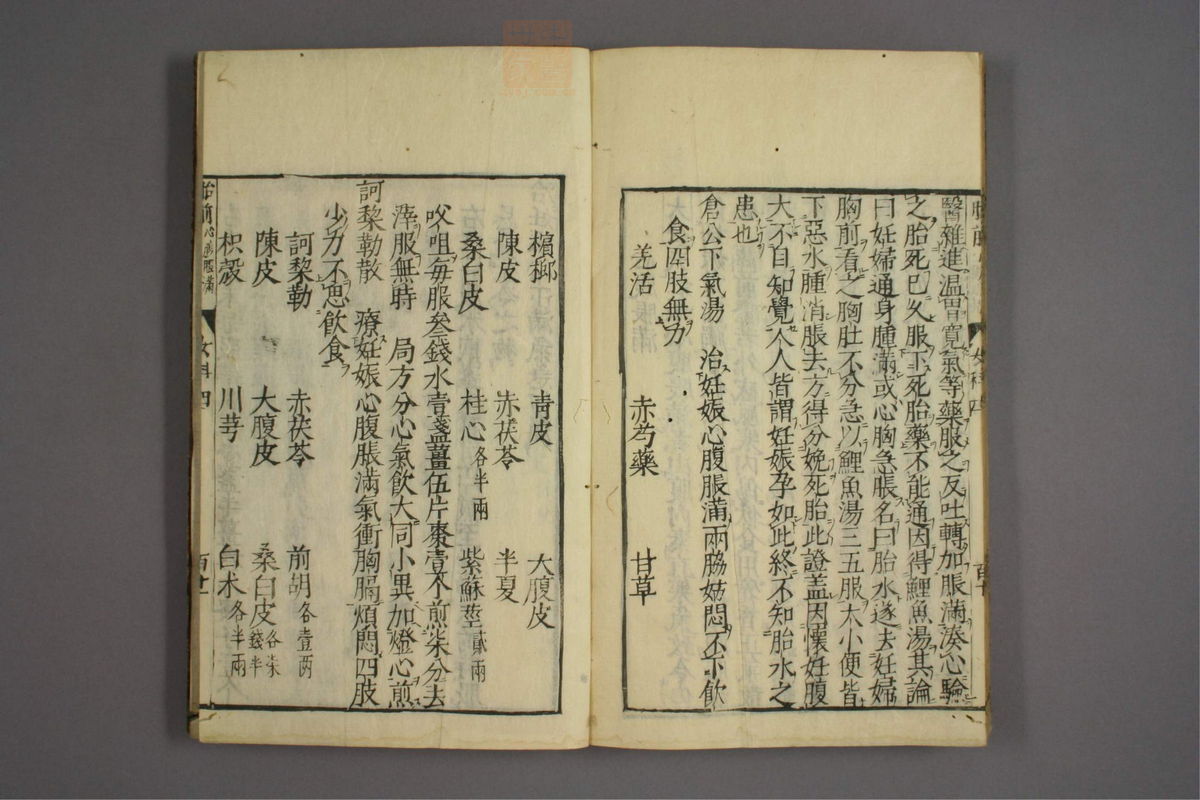 醫雜進温胃寛氣等藥服之反吐轉加脹滿湊心驗
之胎死已久服下死胎藥不能通因得鯉魚湯其論
曰妊婦通身腫滿或心胸急脹名曰胎水遂去妊婦
胸前看之胸肚不分急以鯉魚湯三五服大小便皆
下惡水腫消脹去方得分娩死胎此證盖因懷妊腹
大不自知覺人人皆謂妊娠孕如此終不知胎水之
患也
倉公下氣湯　治妊娠心腹脹滿兩脇妨悶不下飲
食四肢無力
羌活　赤芍藥　甘草
檳榔　青皮　大腹皮
陳皮　赤茯苓　半夏
桑白皮　桂心各半兩　紫蘇莖貳兩
㕮咀每服叄錢水壹盞薑伍片棗壹个煎柒分去
滓服無時　局方分心氣飲大同小異加燈心煎
訶黎勒散　療妊娠心腹脹滿氣衝胸膈煩悶四肢
少力不思飲食
訶黎勒　赤茯苓　前胡各壹两
陳皮　大腹皮　桑白皮各柒錢半
枳殼　川芎　白术各半兩
胎前心腹脹滿　女科四　百十一